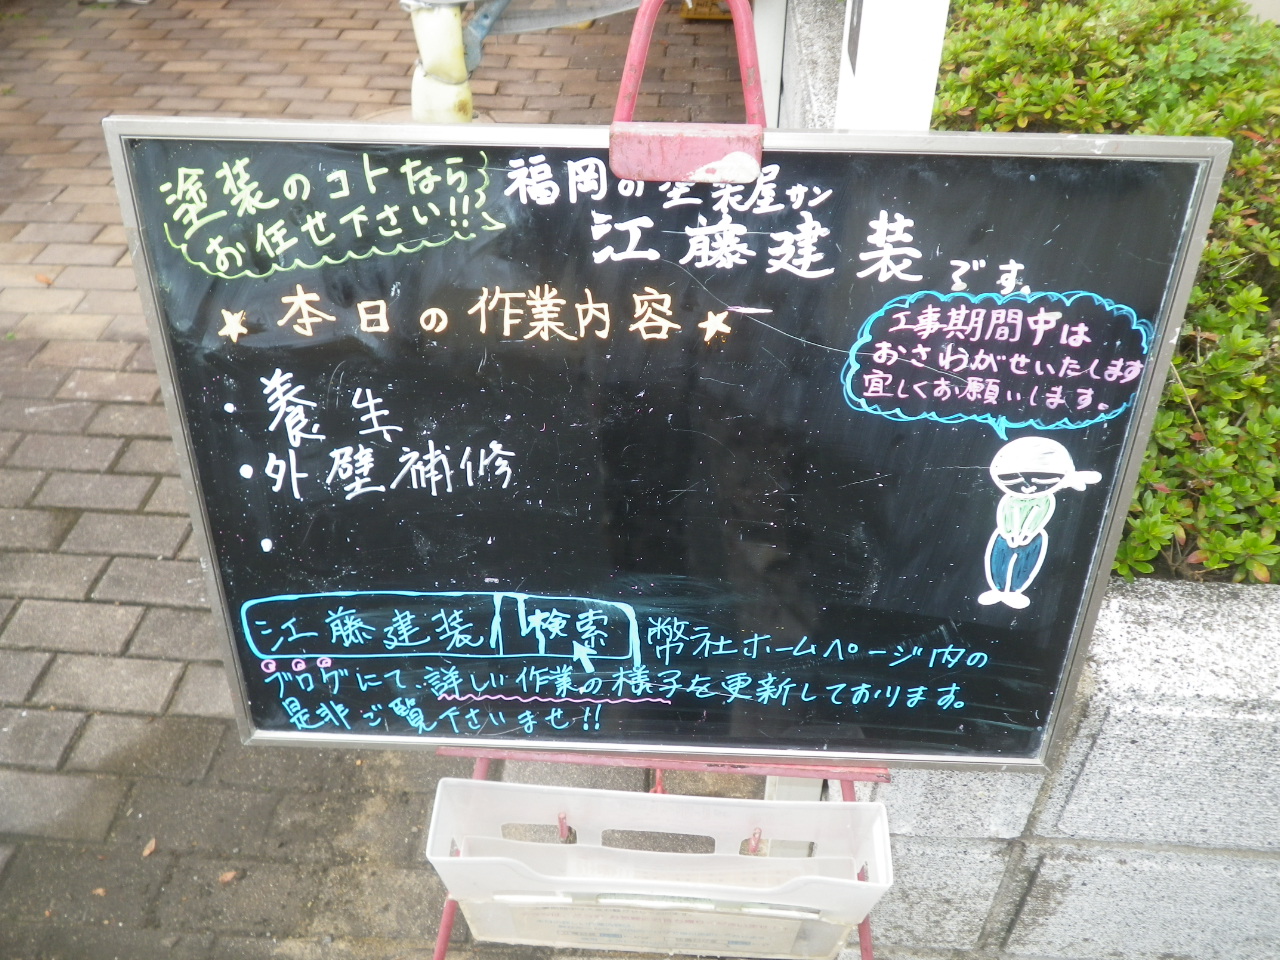 塗装のコトなら
お任せ下さい!!
福岡の塗装屋サン
江藤建装です。
★本日の作業内容★
・養生
・外壁補修
・
工事期間中は
おさわがせいたします
宜しくお願いします。
江藤建装 検索
幣社ホームページ内の
ブログにて、詳しい作業の様子を更新しております。
是非ご覧下さいませ!!